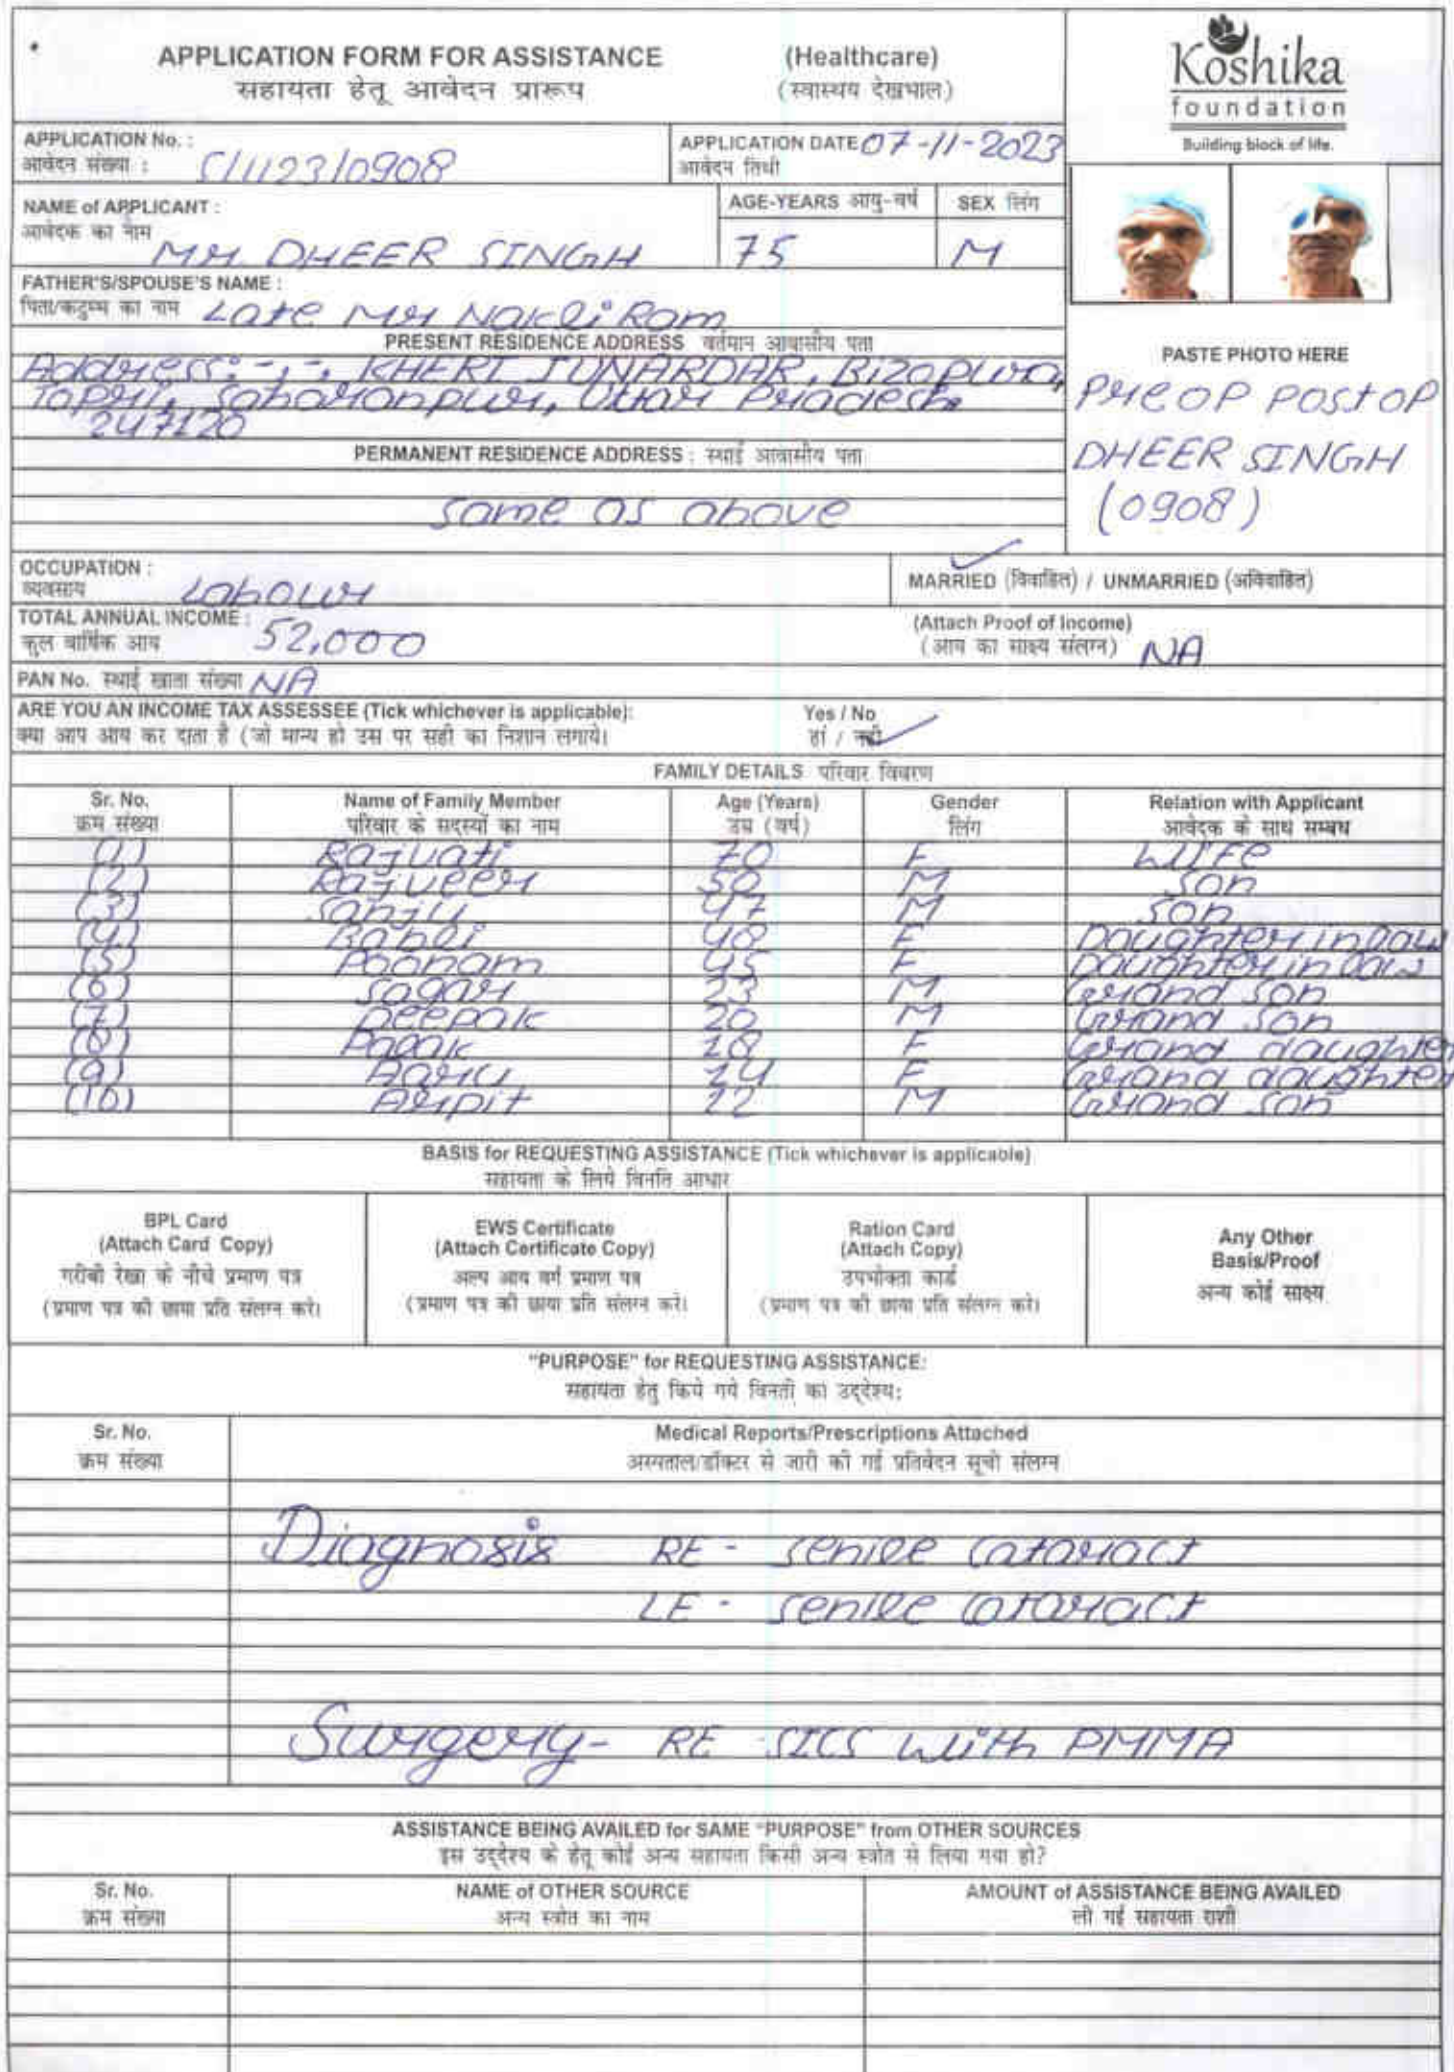 APPLICATION FORM FOR ASSISTANCE (Healthcare)
सहायता हेतू आवेदन प्रारूप (स्वास्थय देखभाल)
Koshika
foundation
Building block of life.
APPLICATION No. :
आवेदन संख्या : S/1123/0908
APPLICATION DATE 07-11-2023
आवेदन तिथी
NAME of APPLICANT :
आवेदक का नाम Mr. DHEER SINGH
AGE-YEARS आयु-वर्ष 75
SEX लिंग M
FATHER'S/SPOUSE'S NAME :
पिता/कटुम्ब का नाम Late Mr Nakli Ram
PRESENT RESIDENCE ADDRESS वर्तमान आवासीय पता
Address:-,-, KHERI JUNARDAR,
Tapri, Saharanpur, Uttar Pradesh
247120
PERMANENT RESIDENCE ADDRESS : स्थाई आवासीय पता
same as above
PASTE PHOTO HERE
PreOP PostOP
DHEER SINGH
(0908)
OCCUPATION :
व्यवसाय Labour
MARRIED (विवाहित) / UNMARRIED (अविवाहित)
TOTAL ANNUAL INCOME :
कुल वार्षिक आय 52,000
(Attach Proof of Income)
(आय का साक्ष्य संलग्न) NA
PAN No. स्थाई खाता संख्या NA
ARE YOU AN INCOME TAX ASSESSEE (Tick whichever is applicable): Yes / No
क्या आप आय कर दाता है (जो मान्य हो उस पर सही का निशान लगाये। हां / नहीं
FAMILY DETAILS परिवार विवरण
Sr. No. Name of Family Member Age (Years) Gender Relation with Applicant
क्रम संख्या परिवार के सदस्यों का नाम उम्र (वर्ष) लिंग आवेदक के साथ सम्बध
(1) Rajvati 70 F Wife
(2) Rajveer 50 M Son
(3) Sanju 47 M Son
(4) 48 F Daughter in law
(5) Poonam 45 F Daughter in law
(6) Sagar 23 M Grand Son
(7) Deepak 20 M Grand Son
(8) Palak 18 F Grand daughter
(9) Aaru 14 F Grand daughter
(10) Arpit 22 M Grand Son
BASIS for REQUESTING ASSISTANCE (Tick whichever is applicable)
सहायता के लिये विनति आधार
BPL Card
(Attach Card Copy)
गरीबी रेखा के नीचे प्रमाण पत्र
(प्रमाण पत्र की छाया प्रति संलग्न करे।
EWS Certificate
(Attach Certificate Copy)
अल्प आय वर्ग प्रमाण पत्र
(प्रमाण पत्र की छाया प्रति संलग्न करे।
Ration Card
(Attach Copy)
उपभोक्ता कार्ड
(प्रमाण पत्र की छाया प्रति संलग्न करे।
Any Other
Basis/Proof
अन्य कोई साक्ष्य
"PURPOSE" for REQUESTING ASSISTANCE:
सहायता हेतु किये गये विनती का उद्देश्य:
Sr. No. Medical Reports/Prescriptions Attached
क्रम संख्या अस्पताल/डॉक्टर से जारी की गई प्रतिवेदन सूची संलग्न
Diagnosis RE - senile cataract
LE - senile cataract
Surgery- RE SICS with PMMA
ASSISTANCE BEING AVAILED for SAME "PURPOSE" from OTHER SOURCES
इस उद्देश्य के हेतू कोई अन्य सहायता किसी अन्य स्त्रोत से लिया गया हो?
Sr. No. NAME of OTHER SOURCE AMOUNT of ASSISTANCE BEING AVAILED
क्रम संख्या अन्य स्त्रोत का नाम ली गई सहायता राशी